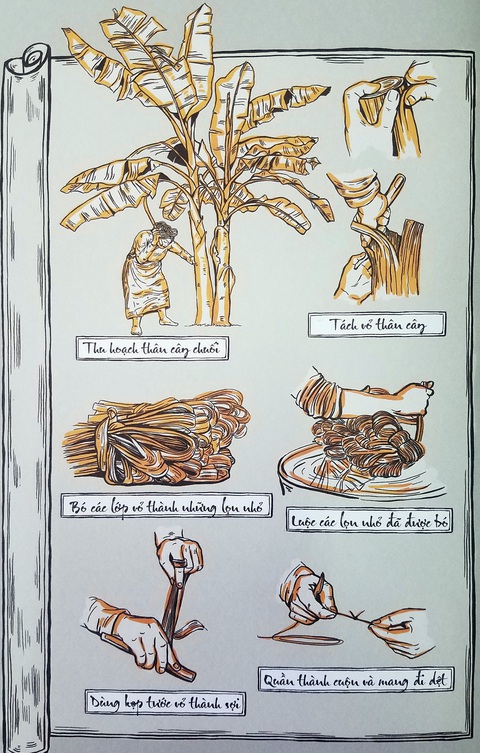 Thu hoạch thân cây chuối
Tách vỏ thân cây
Bó các lớp vỏ thành những lọn nhỏ
Luộc các lọn nhỏ đã được bó
Dùng kẹp tước vỏ thành sợi
Quấn thành cuộn và mang đi dệt